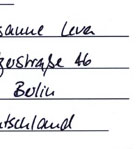 sanne Lever
zerstraße 46
Berlin
utschland